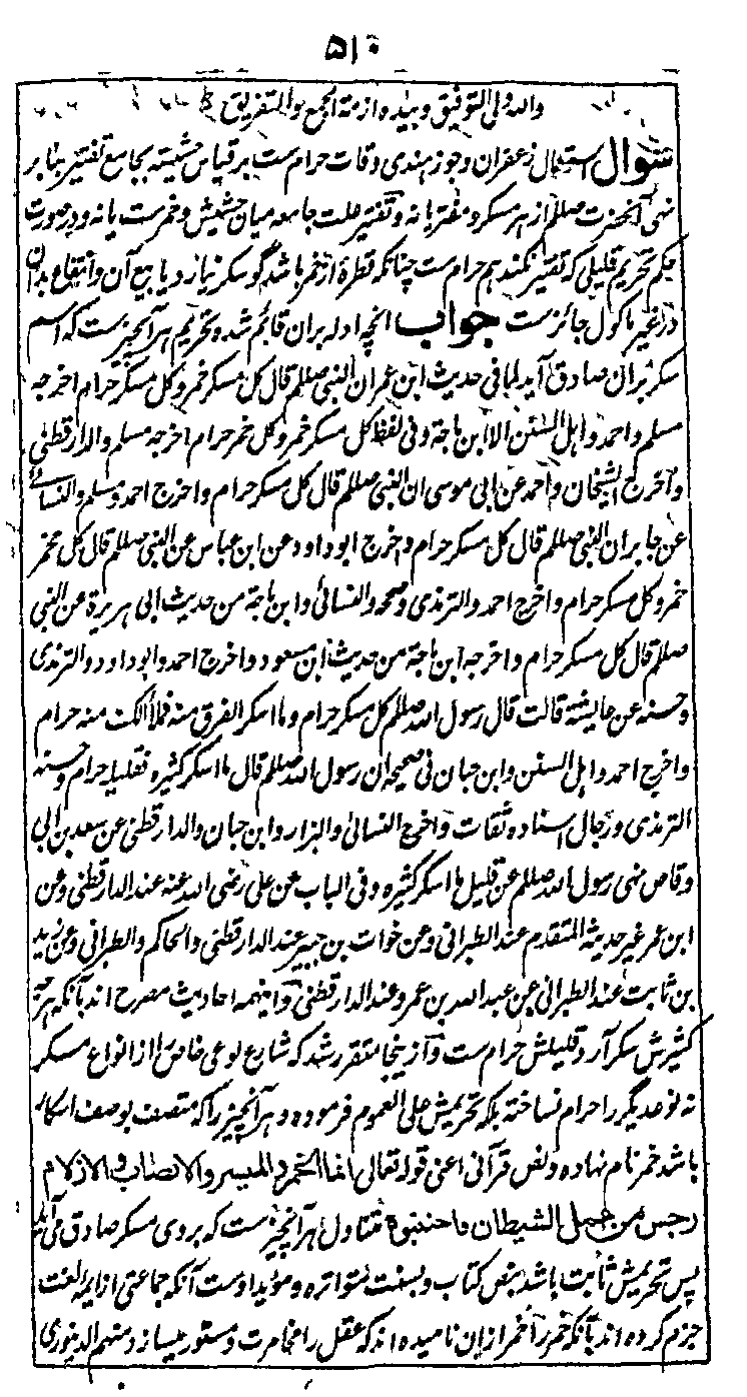 ۵۱۰
والله ولی التوفیق وبیده ازمة الجمع والتفریق
سوال استعمال زعفران وجوز هندی وقات حرام ست بر قیاس حشیشه بجامع تفتیر بنا بر
نهی آنحضرت صللم از هر مسکر و مفتر یا نه و تفتیر علت جامعه میان حشیش و خمر ست یا نه و در صورت
حکم تحریم قلیلی که تفتیر نکند هم حرام ست چنانکه قطرهٔ از خمر باشد گو سکر نیارد یا بیع آن و انتفاع بدان
در غیر ماکول جائز ست جواب انچه ادله بران قائم شد و تحریم هر آنچیز ست که اسم
سکر بران صادق آید لما فی حدیث ابن عمر ان النبی صللم قال کل مسکر خمر و کل مسکر حرام اخرجه
مسلم واحمد واهل السنن الا ابن ماجة وفی لفظ کل مسکر خمر وکل خمر حرام اخرجه مسلم والدارقطنی
واخرج الشیخان واحمد عن ابی موسی ان النبی صللم قال کل مسکر حرام واخرج احمد ومسلم والنسائی
عن جابر ان النبی صللم قال کل مسکر حرام واخرج ابو داود عن ابن عباس عن النبی صللم قال کل مخمر
خمر وکل مسکر حرام واخرج احمد والترمذی وصححه والنسائی وابن ماجة من حدیث ابی هریرة عن النبی
صللم قال کل مسکر حرام واخرجه ابن ماجة من حدیث ابن مسعود واخرج احمد وابو داود والترمذی
وحسنه عن عایشة قالت قال رسول الله صللم کل مسکر حرام وما اسکر الفرق منه فملأ الکف منه حرام
واخرج احمد واهل السنن وابن حبان فی صحیحه ان رسول الله صللم قال ما اسکر کثیره فقلیله حرام وحسنه
الترمذی ورجال اسناده ثقات واخرج النسائی والبزار وابن حبان والدارقطنی عن سعد بن ابی
وقاص نهی رسول الله صللم عن قلیل ما اسکر کثیره وفی الباب عن علی رضی الله عنه عند الدارقطنی وعن
ابن عمر غیر حدیثه المتقدم عند الطبرانی وعن خوات بن جبیر عند الدارقطنی والحاکم والطبرانی وعن زید
بن ثابت عند الطبرانی وعن عبدالله بن عمرو عند الدارقطنی و اینهمه احادیث مصرح اند بآنکه هرچه
کثیرش سکر آرد قلیلش حرام ست و از ینجا متقرر شد که شارع نوعی خاص را از انواع مسکر
نه نوع دیگر را حرام نساخته بلکه تحریمش علی العموم فرموده و هر آنچیز را که متصف بوصف اسکار
باشد خمر نام نهاده و نص قرآنی اعنی قوله تعالی انما الخمر والمیسر والانصاب والازلام
رجس من عمل الشیطان فاجتنبوه متناول هر آنچیز ست که بروی مسکر صادق می آید
پس تحریمش ثابت باشد بنص کتاب و بسنت متواتره و مؤید اوست آنکه جماعتی از ایمهٔ لغت
جزم کرده اند بآنکه خمر را خمر ازان نامیده اند که عقل را مخامرت و مستور میسازد ومنهم الدینوری